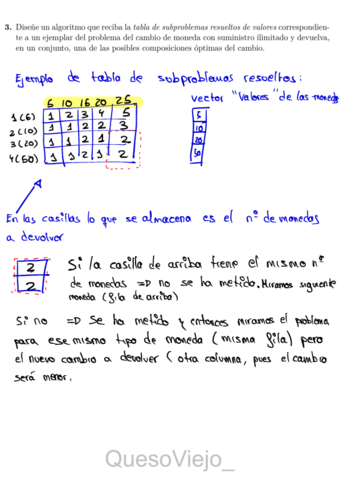 3. Diseñe un algoritmo que reciba la tabla de subproblemas resueltos de valores correspondien-
te a un ejemplar del problema del cambio de moneda con suministro ilimitado y devuelva,
en un conjunto, una de las posibles composiciones óptimas del cambio.
Ejemplo de tabla de subproblemas resueltos:
5 10 16 20 25 vector "Valores" de las moneda
1 (5) 1 2 3 4 5 5
2 (10) 1 1 2 2 3 10
3 (20) 1 1 2 1 2 20
4 (50) 1 1 2 1 2 50
En las casillas lo que se almacena es el nº de monedas
a devolver
2 Si la casilla de arriba tiene el mismo nº
2 de monedas => no se ha metido. Miramos siguiente
moneda (fila de arriba)
Si no => Se ha metido y entonces miramos el problema
para ese mismo tipo de moneda (misma fila) pero
el nuevo cambio a devolver (otra columna, pues el cambio
será menor.
QuesoViejo_